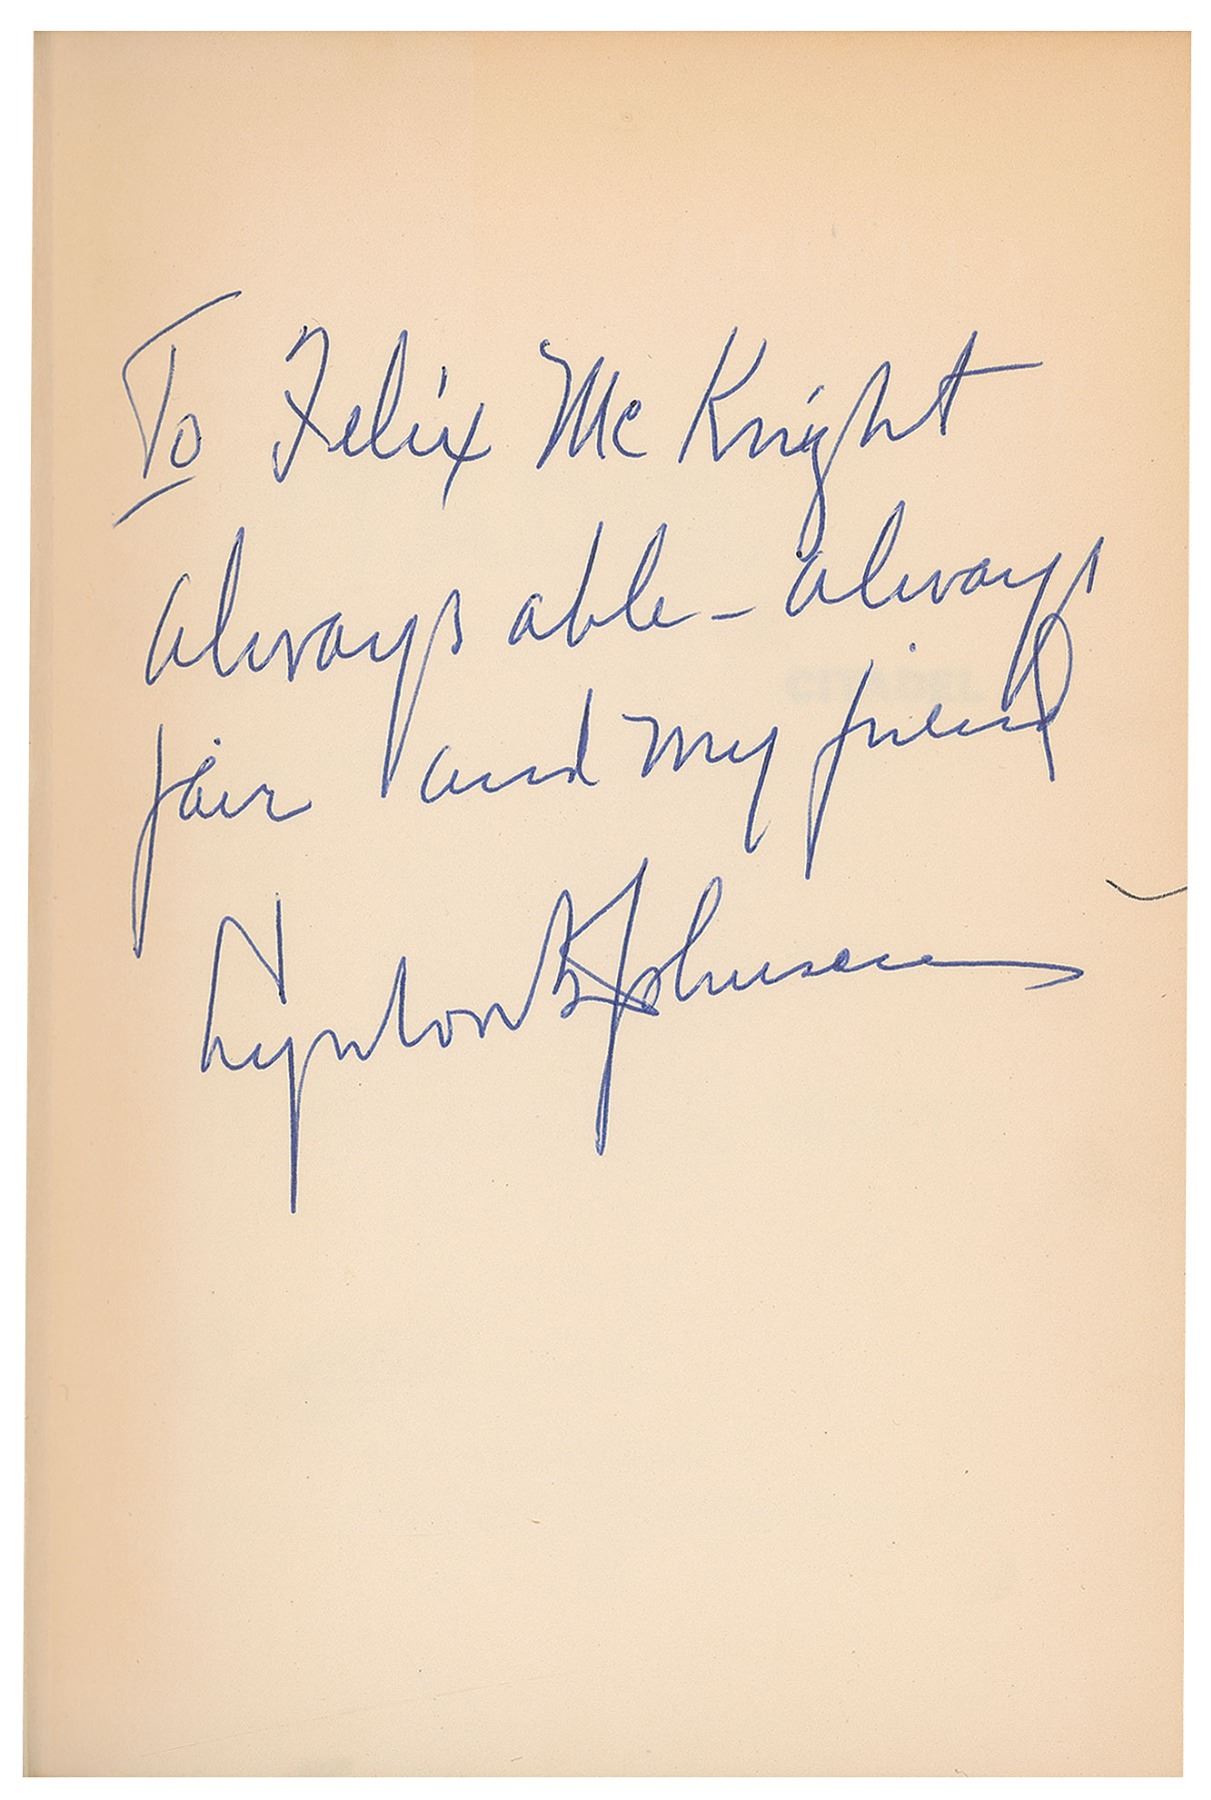 To Felix McKnight
always able - always
fair and my friend
CITADEL
Lyndon B Johnson